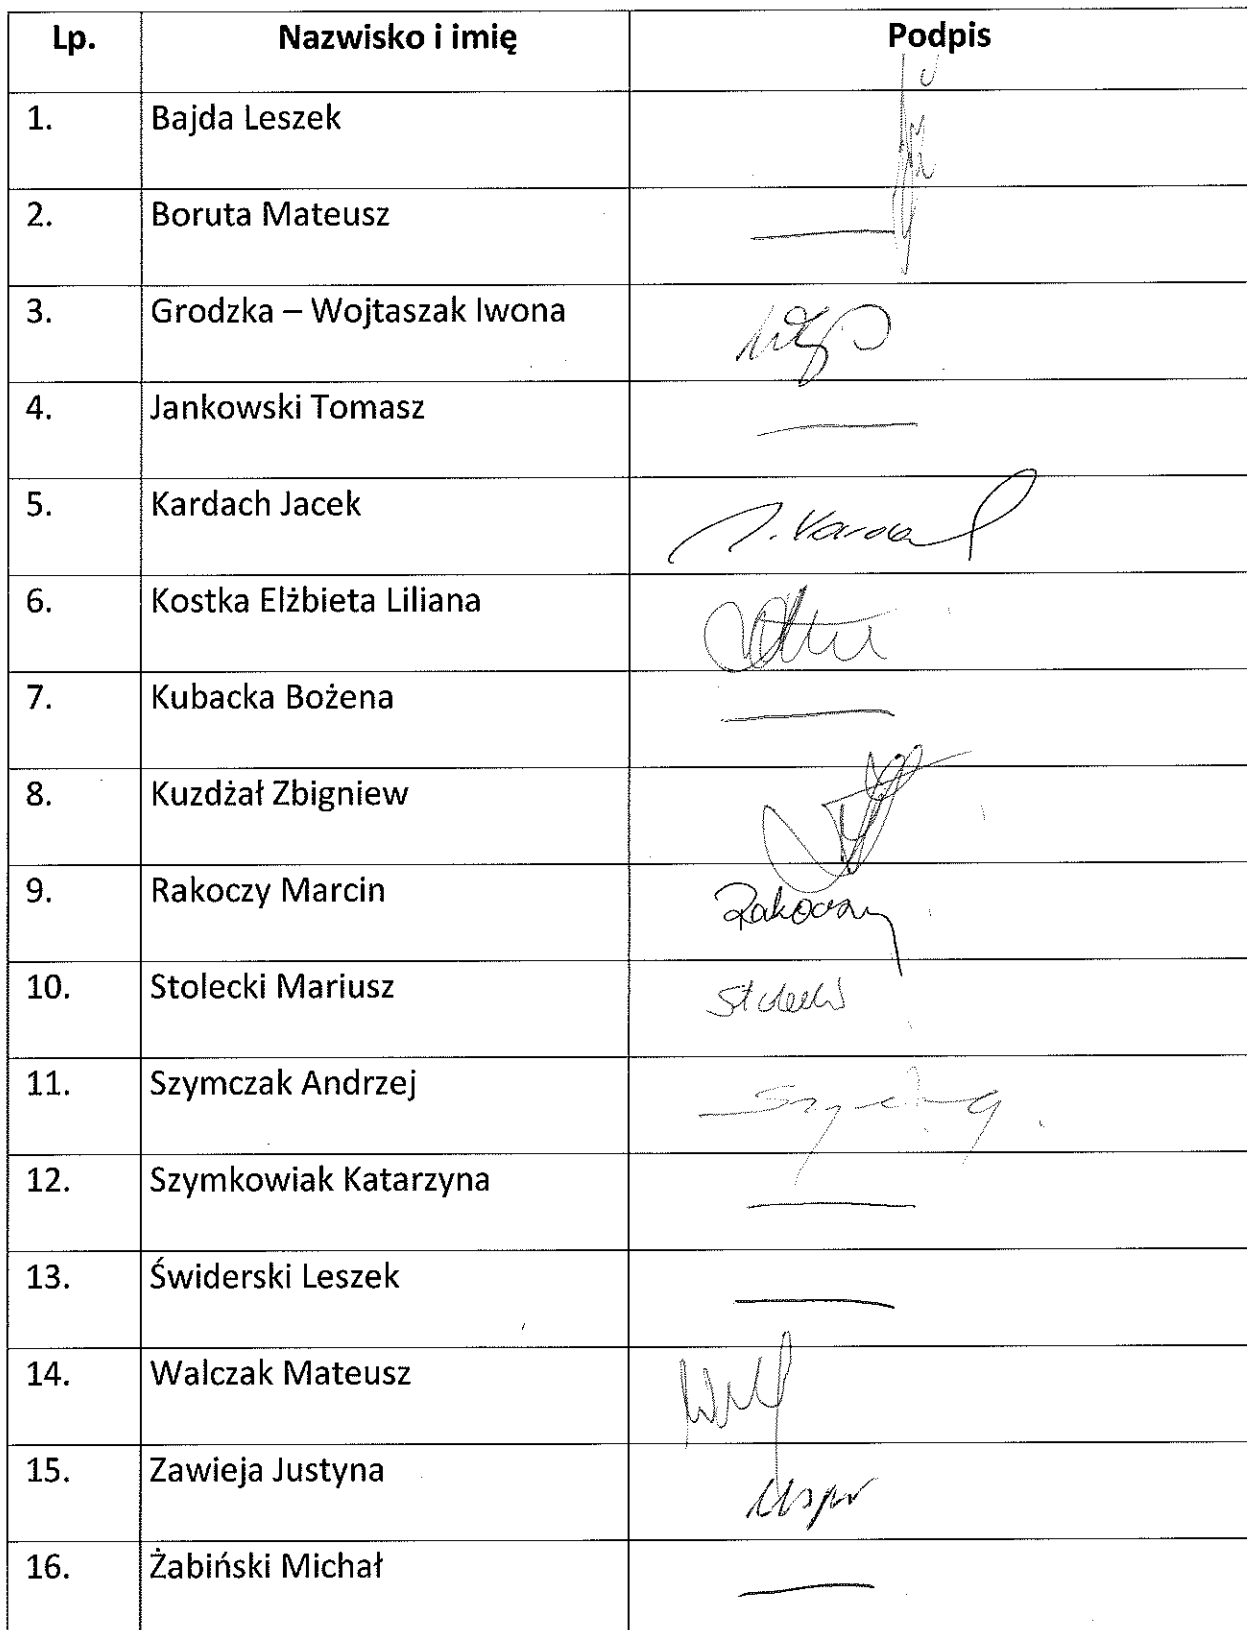 Lp. Nazwisko i imię Podpis
1. Bajda Leszek
2. Boruta Mateusz —
3. Grodzka – Wojtaszak Iwona
4. Jankowski Tomasz —
5. Kardach Jacek
6. Kostka Elżbieta Liliana
7. Kubacka Bożena —
8. Kuzdżał Zbigniew
9. Rakoczy Marcin Rakoczy
10. Stolecki Mariusz Stolecki
11. Szymczak Andrzej
12. Szymkowiak Katarzyna —
13. Świderski Leszek —
14. Walczak Mateusz
15. Zawieja Justyna
16. Żabiński Michał —